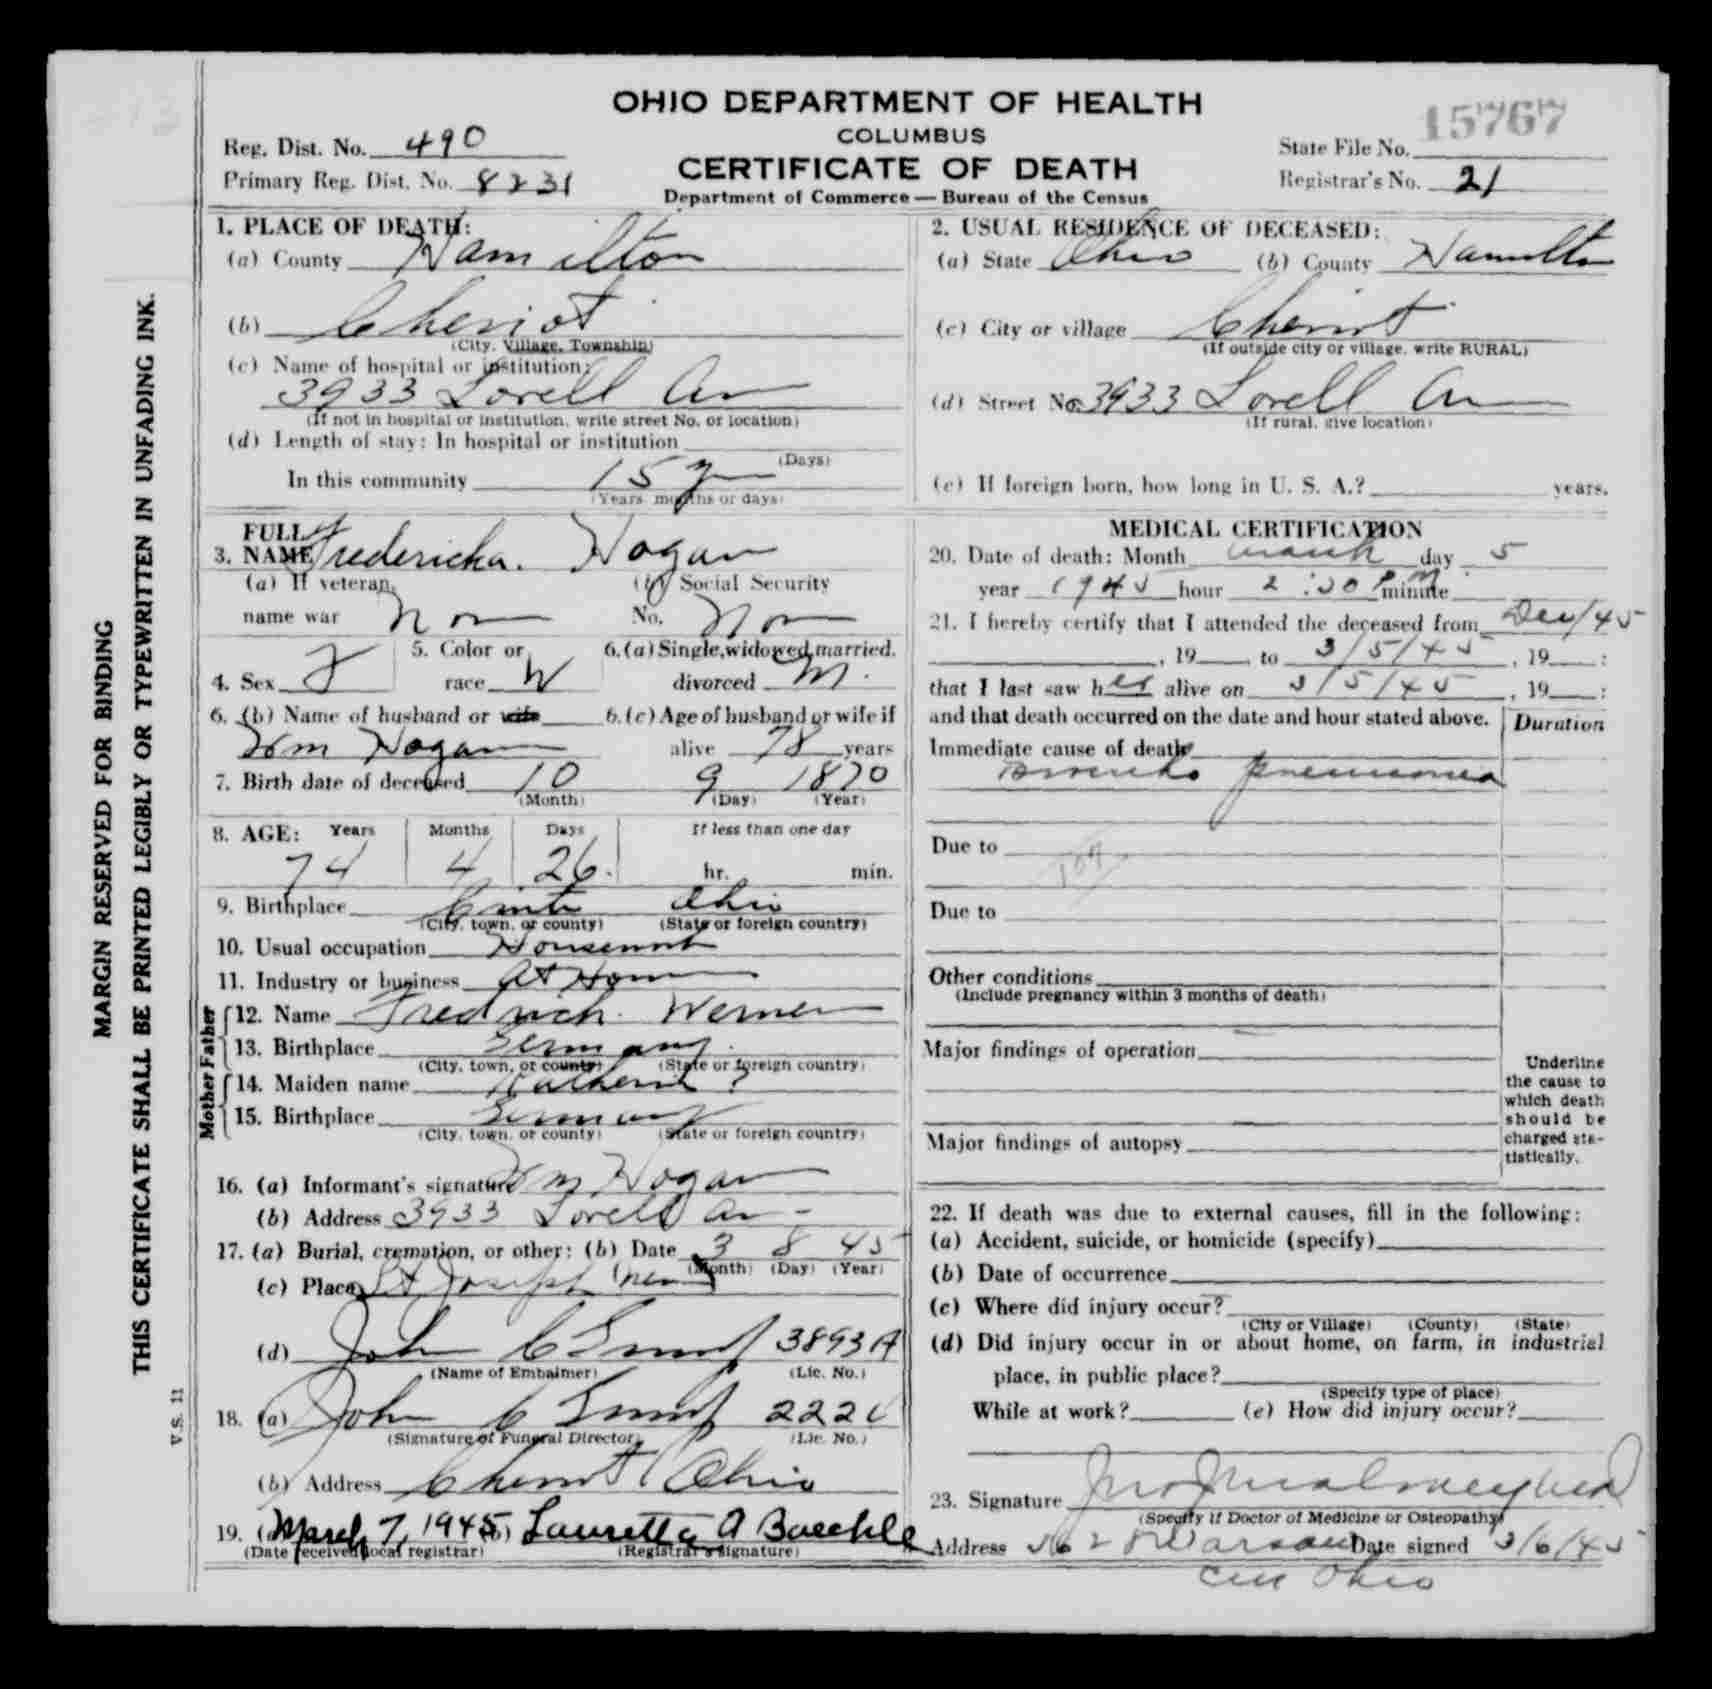 OHIO DEPARTMENT OF HEALTH
COLUMBUS
CERTIFICATE OF DEATH
Department of Commerce — Bureau of the Census
Reg. Dist. No. 490
Primary Reg. Dist. No. 8231
15767
State File No.
Registrar's No. 21
MARGIN RESERVED FOR BINDING
THIS CERTIFICATE SHALL BE PRINTED LEGIBLY OR TYPEWRITTEN IN UNFADING INK.
V.S. 11
1. PLACE OF DEATH:
(a) County Hamilton
(b) Cheviot
(City, Village, Township)
(c) Name of hospital or institution:
3933 Lovell Av
(If not in hospital or institution, write street No. or location)
(d) Length of stay: In hospital or institution
(Days)
In this community 15 y
(Years months or days)
2. USUAL RESIDENCE OF DECEASED:
(a) State Ohio (b) County Hamilton
(c) City or village Cheviot
(If outside city or village, write RURAL)
(d) Street No. 3933 Lovell Av
(If rural, give location)
(e) If foreign born, how long in U. S. A.? years.
3. FULL NAME Fredericka. Hogan
(a) If veteran, (b) Social Security
name war Non No. Non
4. Sex F 5. Color or race W 6. (a) Single, widowed, married, divorced M.
6. (b) Name of husband or wife 6. (c) Age of husband or wife if
Wm Hogan alive 78 years
7. Birth date of deceased 10 9 1870
(Month) (Day) (Year)
8. AGE: Years Months Days If less than one day
74 4 26. hr. min.
9. Birthplace Cinti Ohio
(City, town, or county) (State or foreign country)
10. Usual occupation Housework
11. Industry or business At Home
Father
12. Name Fredrich. Werner
13. Birthplace Germany.
(City, town, or county) (State or foreign country)
Mother
14. Maiden name Katherin ?
15. Birthplace Germany
(City, town, or county) (State or foreign country)
16. (a) Informant's signature Wm Hogan
(b) Address 3933 Lovell Av -
17. (a) Burial, cremation, or other: (b) Date 3 8 45
(Month) (Day) (Year)
(c) Place St Joseph (new)
(d) John C 3893A
(Name of Embalmer) (Lic. No.)
18. (a) John C
(Signature of Funeral Director) (Lic. No.)
(b) Address Cheviot Ohio
19. (a) March 7, 1945 (b) Lauretta A Baechle
(Date received local registrar) (Registrar's signature)
MEDICAL CERTIFICATION
20. Date of death: Month March day 5
year 1945 hour 2:30 P.M. minute
21. I hereby certify that I attended the deceased from Dec/45
, 19 to 3/5/45, 19 :
that I last saw her alive on 3/5/45, 19 :
and that death occurred on the date and hour stated above. Duration
Immediate cause of death
Broncho pneumonia
Due to 107
Due to
Other conditions
(Include pregnancy within 3 months of death)
Major findings of operation
Major findings of autopsy
Underline
the cause to
which death
should be
charged sta-
tistically.
22. If death was due to external causes, fill in the following:
(a) Accident, suicide, or homicide (specify)
(b) Date of occurrence
(c) Where did injury occur?
(City or Village) (County) (State)
(d) Did injury occur in or about home, on farm, in industrial
place, in public place?
(Specify type of place)
While at work? (e) How did injury occur?
23. Signature
(Specify if Doctor of Medicine or Osteopathy)
Address Warsaw Date signed 3/6/45
Cin Ohio